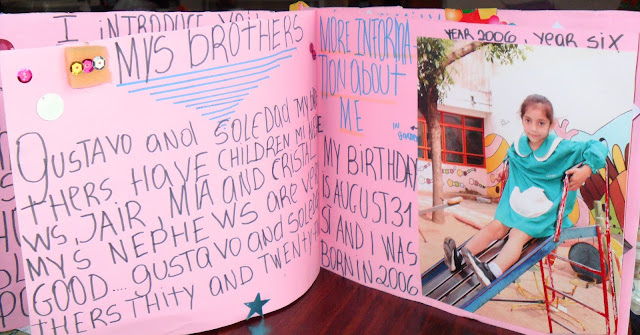 I INTRODUCE
MYS BROTHERS
GUSTAVO AND SOLEDAD MY
THERS HAVE CHILDREN MI
WS, JAIR, MIA AND
MYS NEPHEWS ARE
GOOD... GUSTAVO AND
THERS THITY AND
MORE INFORMA-
TION ABOUT
ME
IN
MY BIRTHDAY
IS AUGUST 31
ST AND I WAS
BORN IN 2006
YEAR 2006, YEAR SIX